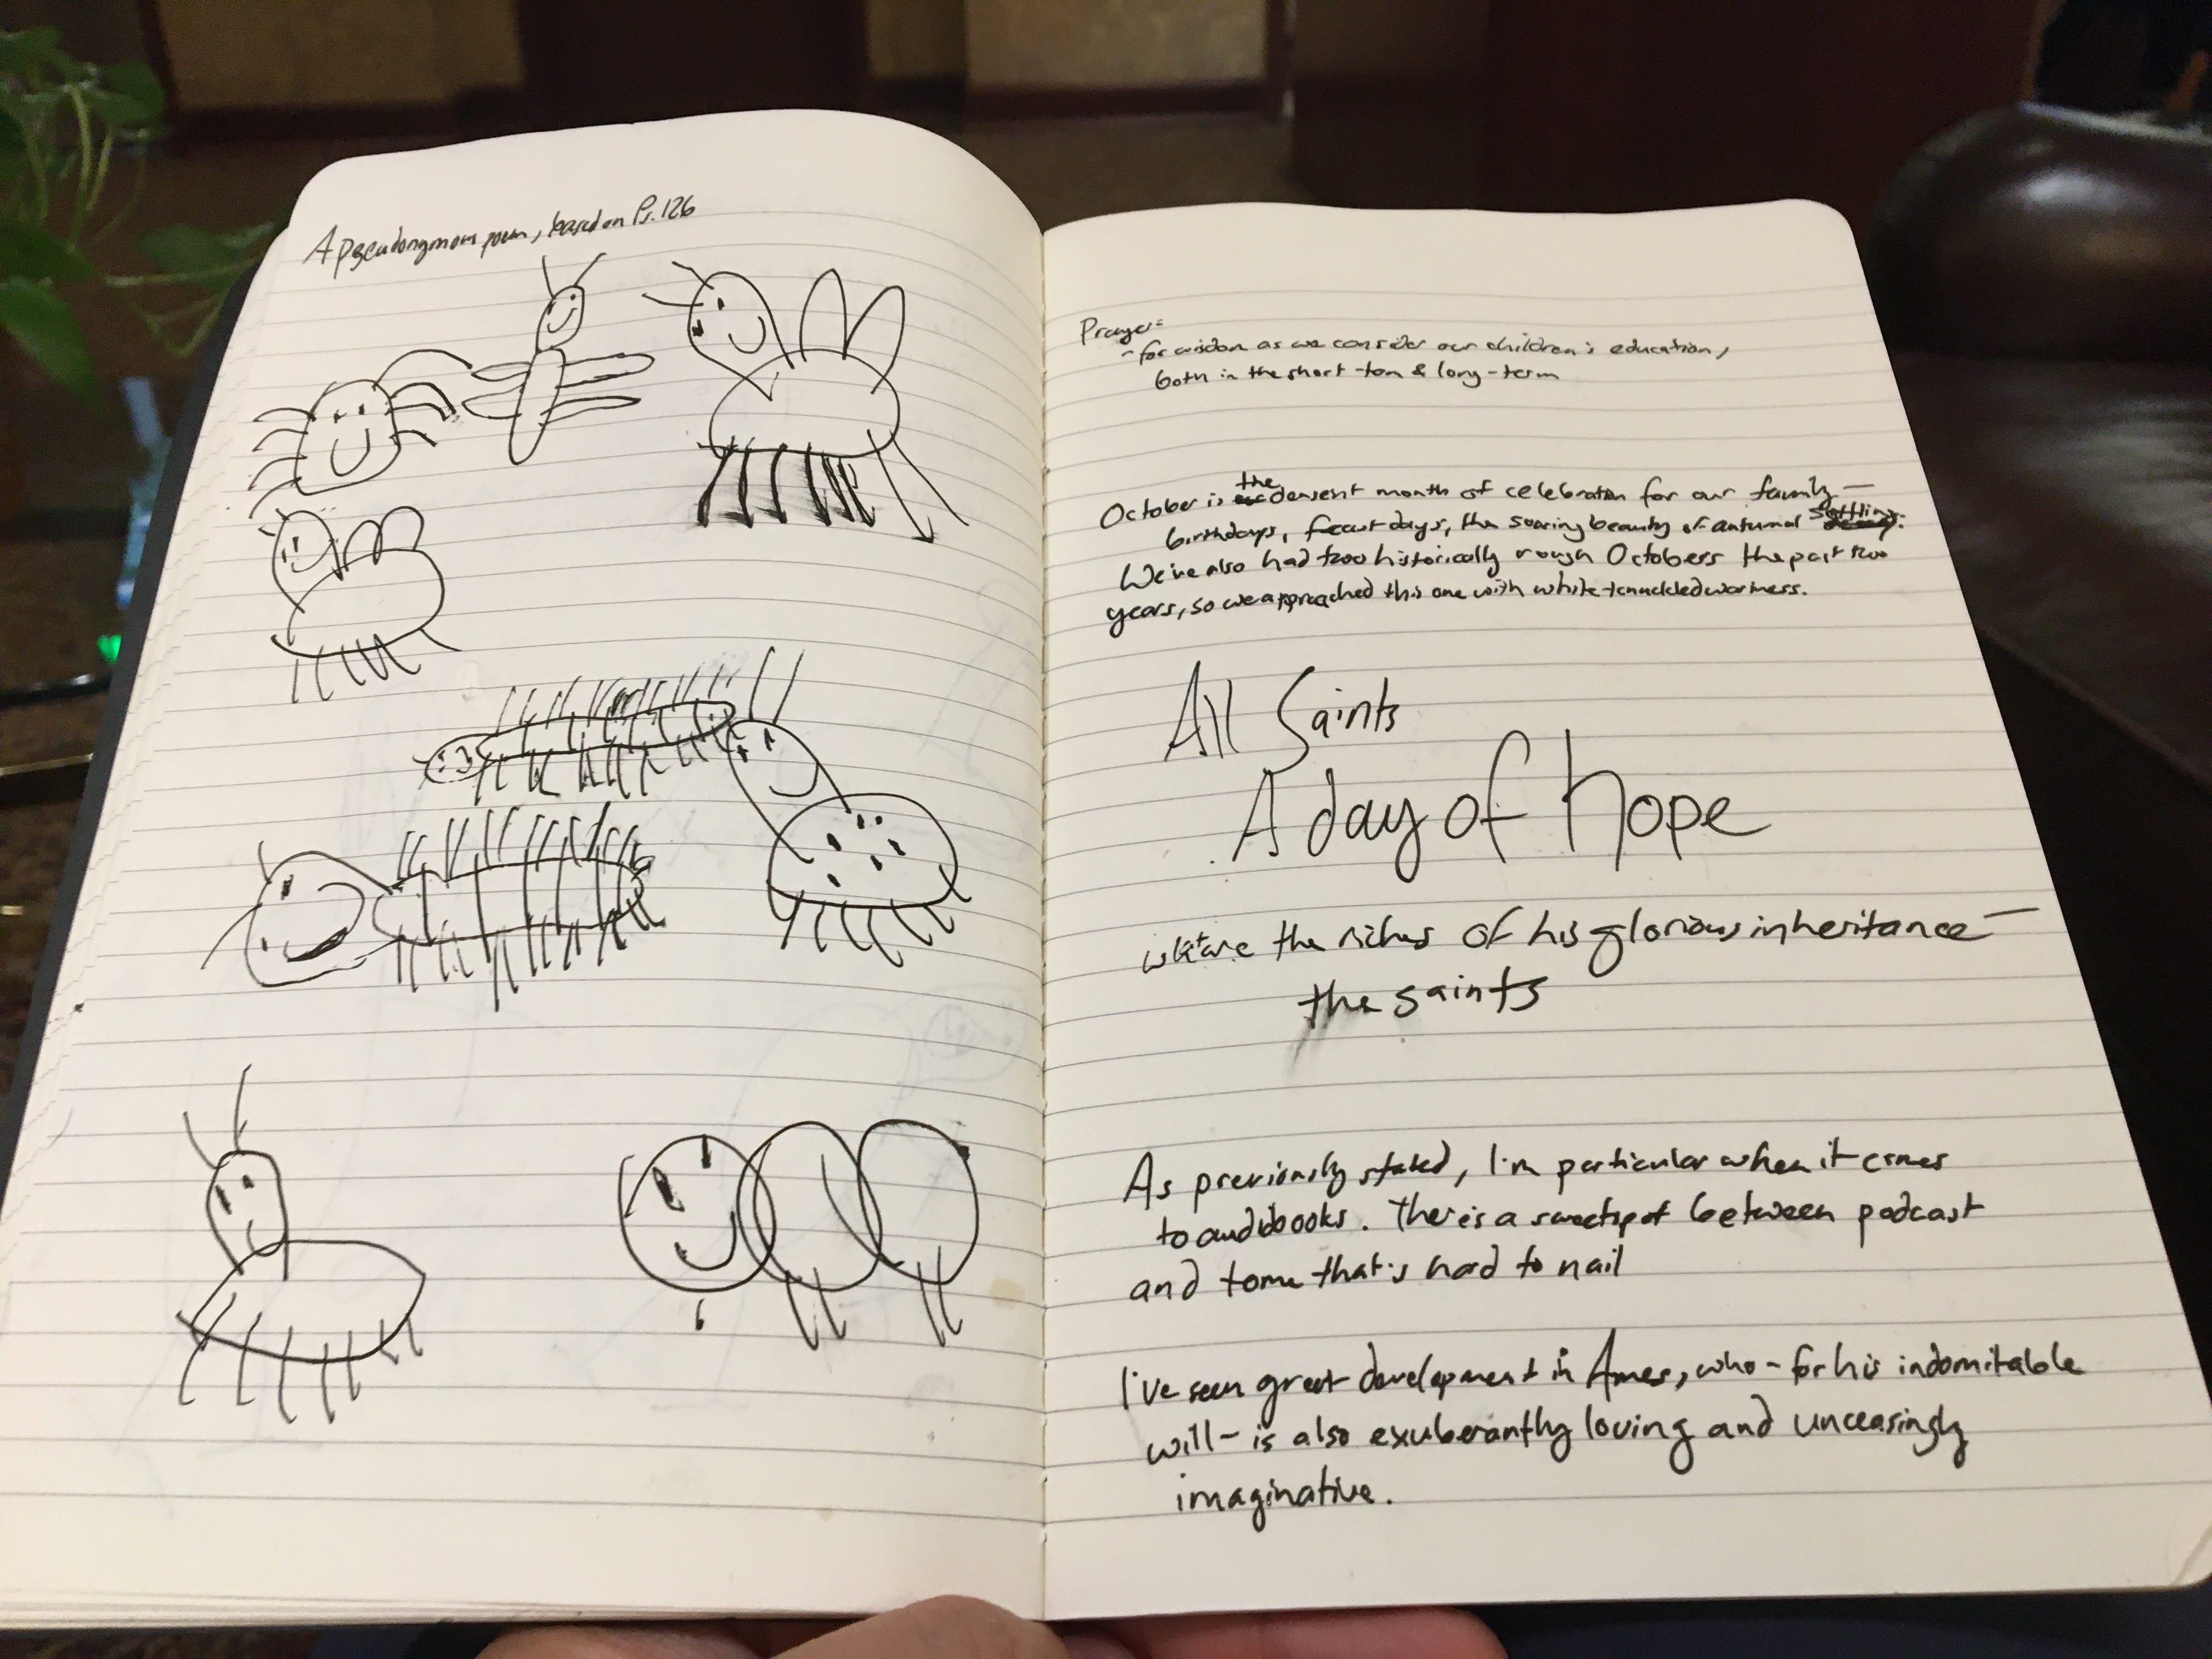 A pseudongmom poem, based on Ps. 126
Prayer:
- for wisdom as we consider our children's education,
both in the short-term & long-term
October is the densest month of celebration for our family —
birthdays, feast days, the soaring beauty of autumnal settling.
We've also had two historically rough Octobers the past two
years, so we approached this one with white-knuckled wariness.
All Saints
A day of hope
what are the riches of his glorious inheritance —
the saints
As previously stated, I'm particular when it comes
to audibooks. There is a sweetspot between podcast
and tome that's hard to nail
I've seen great development in Ames, who - for his indomitable
will - is also exuberantly loving and unceasingly
imaginative.